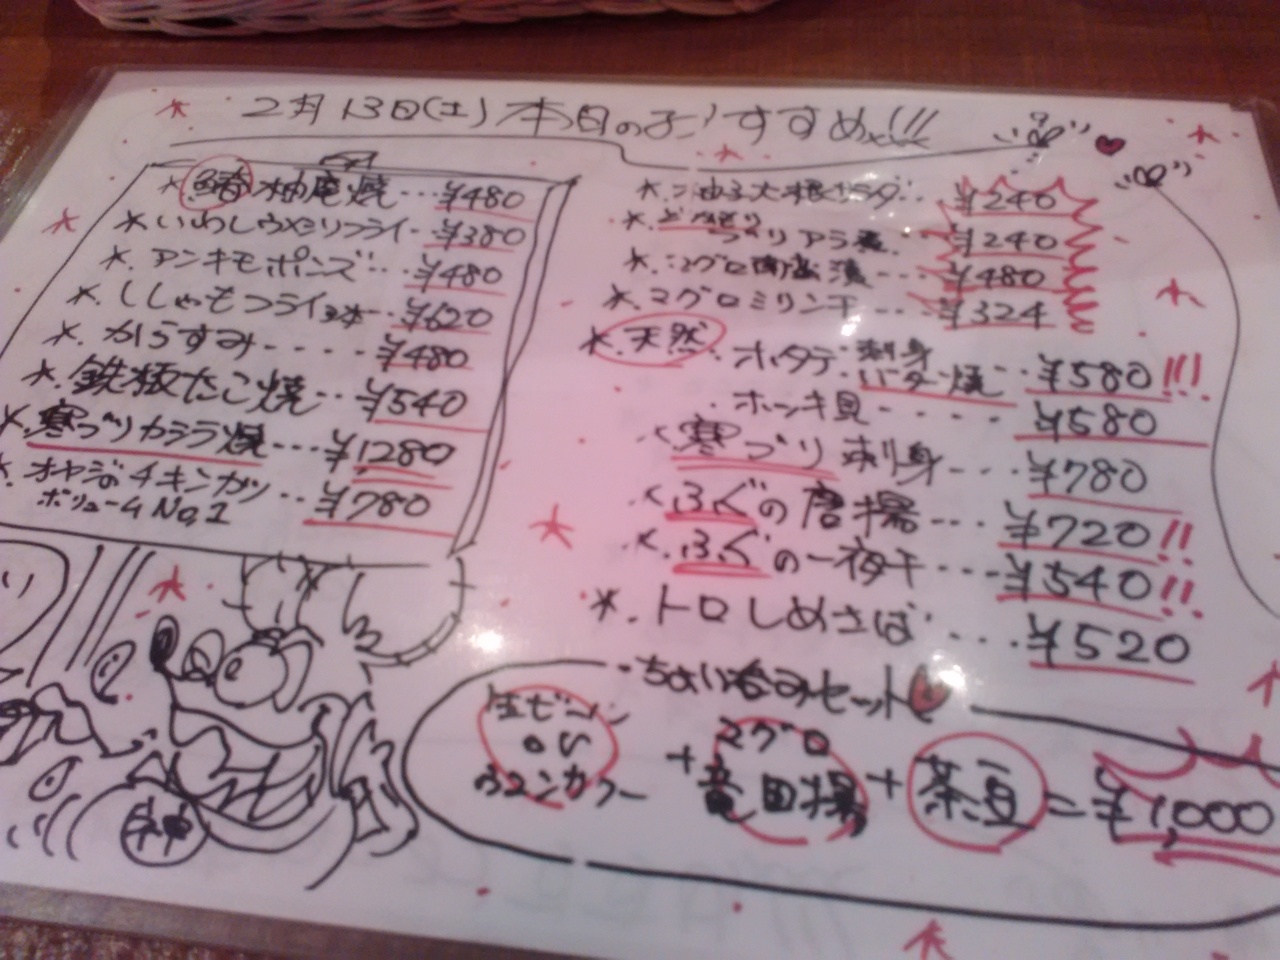 2月13日(土)本日のおすすめ!!!
*鰆柚庵焼…¥480
*いわしウメシソフライ…¥380
*アンキモポンズ…¥480
*ししゃもフライ3本…¥620
*からすみ....¥480
*鉄板たこ焼…¥540
*寒ブリカマ焼…¥1280
*オヤジのチキンカツ…¥780
ボリュームNo.1
大根サラダ…¥240
アラ煮…¥240
マグロ…¥480
*マグロミリン干…¥324
*天然 ホタテ 刺身
バター焼…¥580!!!
ホッキ貝....¥580
寒ブリ刺身...¥780
ふぐの唐揚...¥720!!
ふぐの一夜干...¥540!!
*トロしめさば...¥520
ちょい呑みセット
生ビール + マグロ + 茶豆 = ¥1,000
竜田揚
神